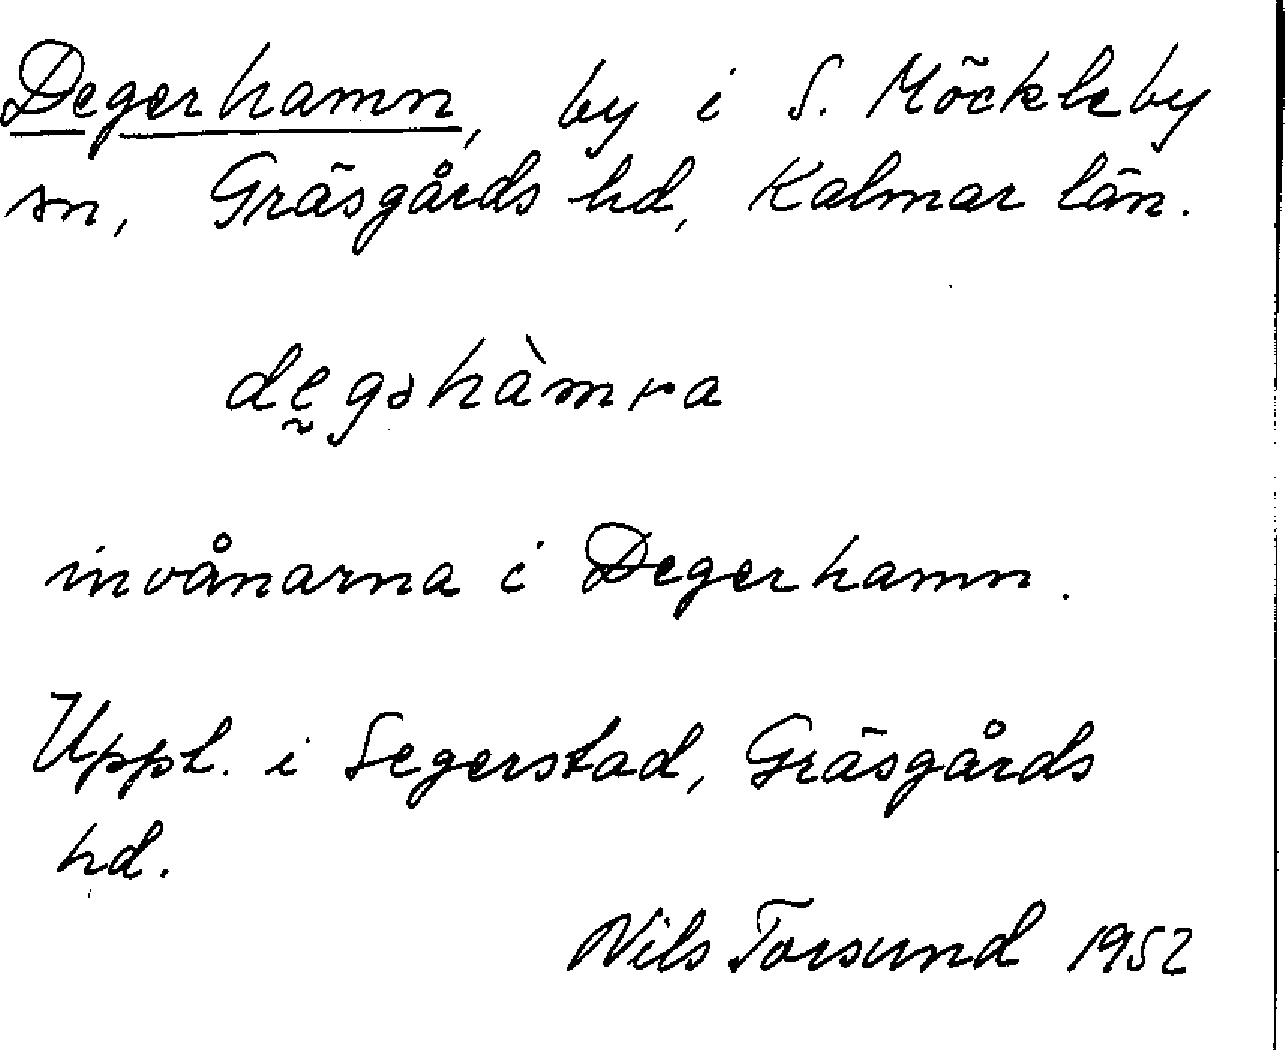 Degerhamn, by i S. Möckleby
sn, Gräsgårds hd, Kalmar län.
dḛgəhàmra
invånarna i Degerhamn.
Uppt. i Segerstad, Gräsgårds
hd.
Nils Torsund 1952